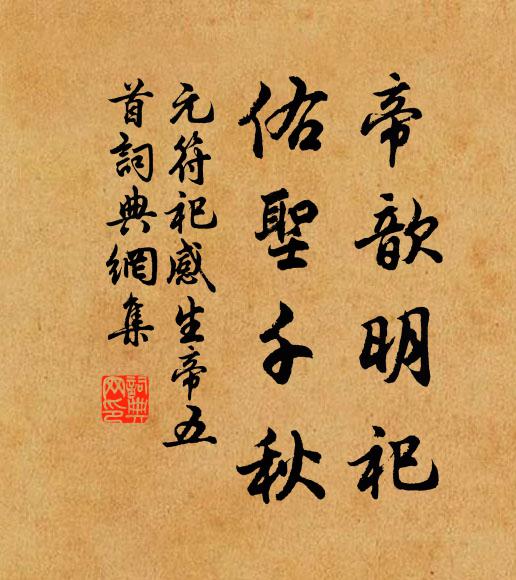 帝歆明祀
佑聖千秋
元符祀感生帝五
首詞典網集
詞典網印